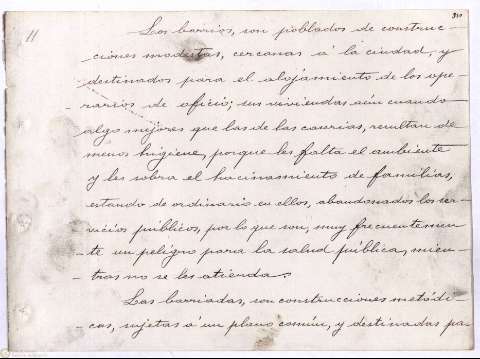 11
310
Los barrios, son poblados de construc-
ciones modestas, cercanas á la ciudad, y
destinados para el alojamiento de los ope-
-rarios de oficio; sus viviendas aún cuando
algo mejores que las de las caserías, resultan de
menos higiene, porque les falta el ambiente
y les sobra el hacinamiento de familias,
estando de ordinario en ellos, abandonados los ser-
-vicios públicos, por lo que son, muy frecuentemen-
-te un peligro para la salud pública, mien-
-tras no se les atienda.
Las barriadas, son construcciones metódi-
-cas, sujetas á un plano común, y destinadas pa-